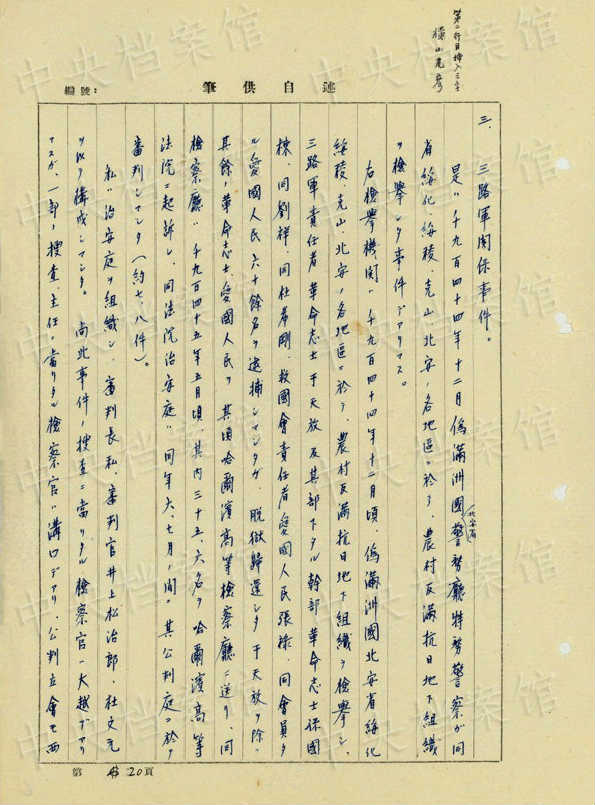 第二行目挿入三字
横山光彦
述自供筆
編號：
三、三路軍関係事件。
是ハ千九百四十四年十二月偽満洲國北安省警務廳特務警察ガ同
省綏化、綏稜、克山北安ノ各地區ニ於ケル農村反満抗日地下組織
ヲ檢擧シタ事件デアリマス。
右檢擧機関ハ千九百四十四年十二月頃偽満洲國北安省綏化
綏稜、克山、北安ノ各地區ニ於テ、農村反満抗日地下組織ヲ檢擧シ、
三路軍責任者革命志士于天放及其部下タル幹部革命志士孫國
棟、同劉祥、同杜希剛、救國會責任者愛國人民張祿、同會員タ
ル愛國人民六十餘名ヲ逮捕シマシタガ、脱獄歸還シタ于天放ヲ除ク
其餘ノ革命志士愛國人民ヲ其頃哈爾濱高等檢察廳ニ送リ、同
檢察廳ハ千九百四十五年五月頃、其内三十五、六名ヲ哈爾濱高等
法院ニ起訴シ、同法院治安庭ハ同年六、七月ノ間、其公判庭ニ於テ
審判シマシタ（約七、八件）。
私ハ治安庭ヲ組織シ、審判長私、審判官井上松治郎、杜文元
ヲ以テ構成シマシタ。尚此事件ノ搜查ニ當リタル檢察官ハ大越デアリ
マスガ、一部ノ搜查主任ニ當リタル檢察官ハ溝口デアリ、公判立會モ西
第 20 頁
中央档案馆